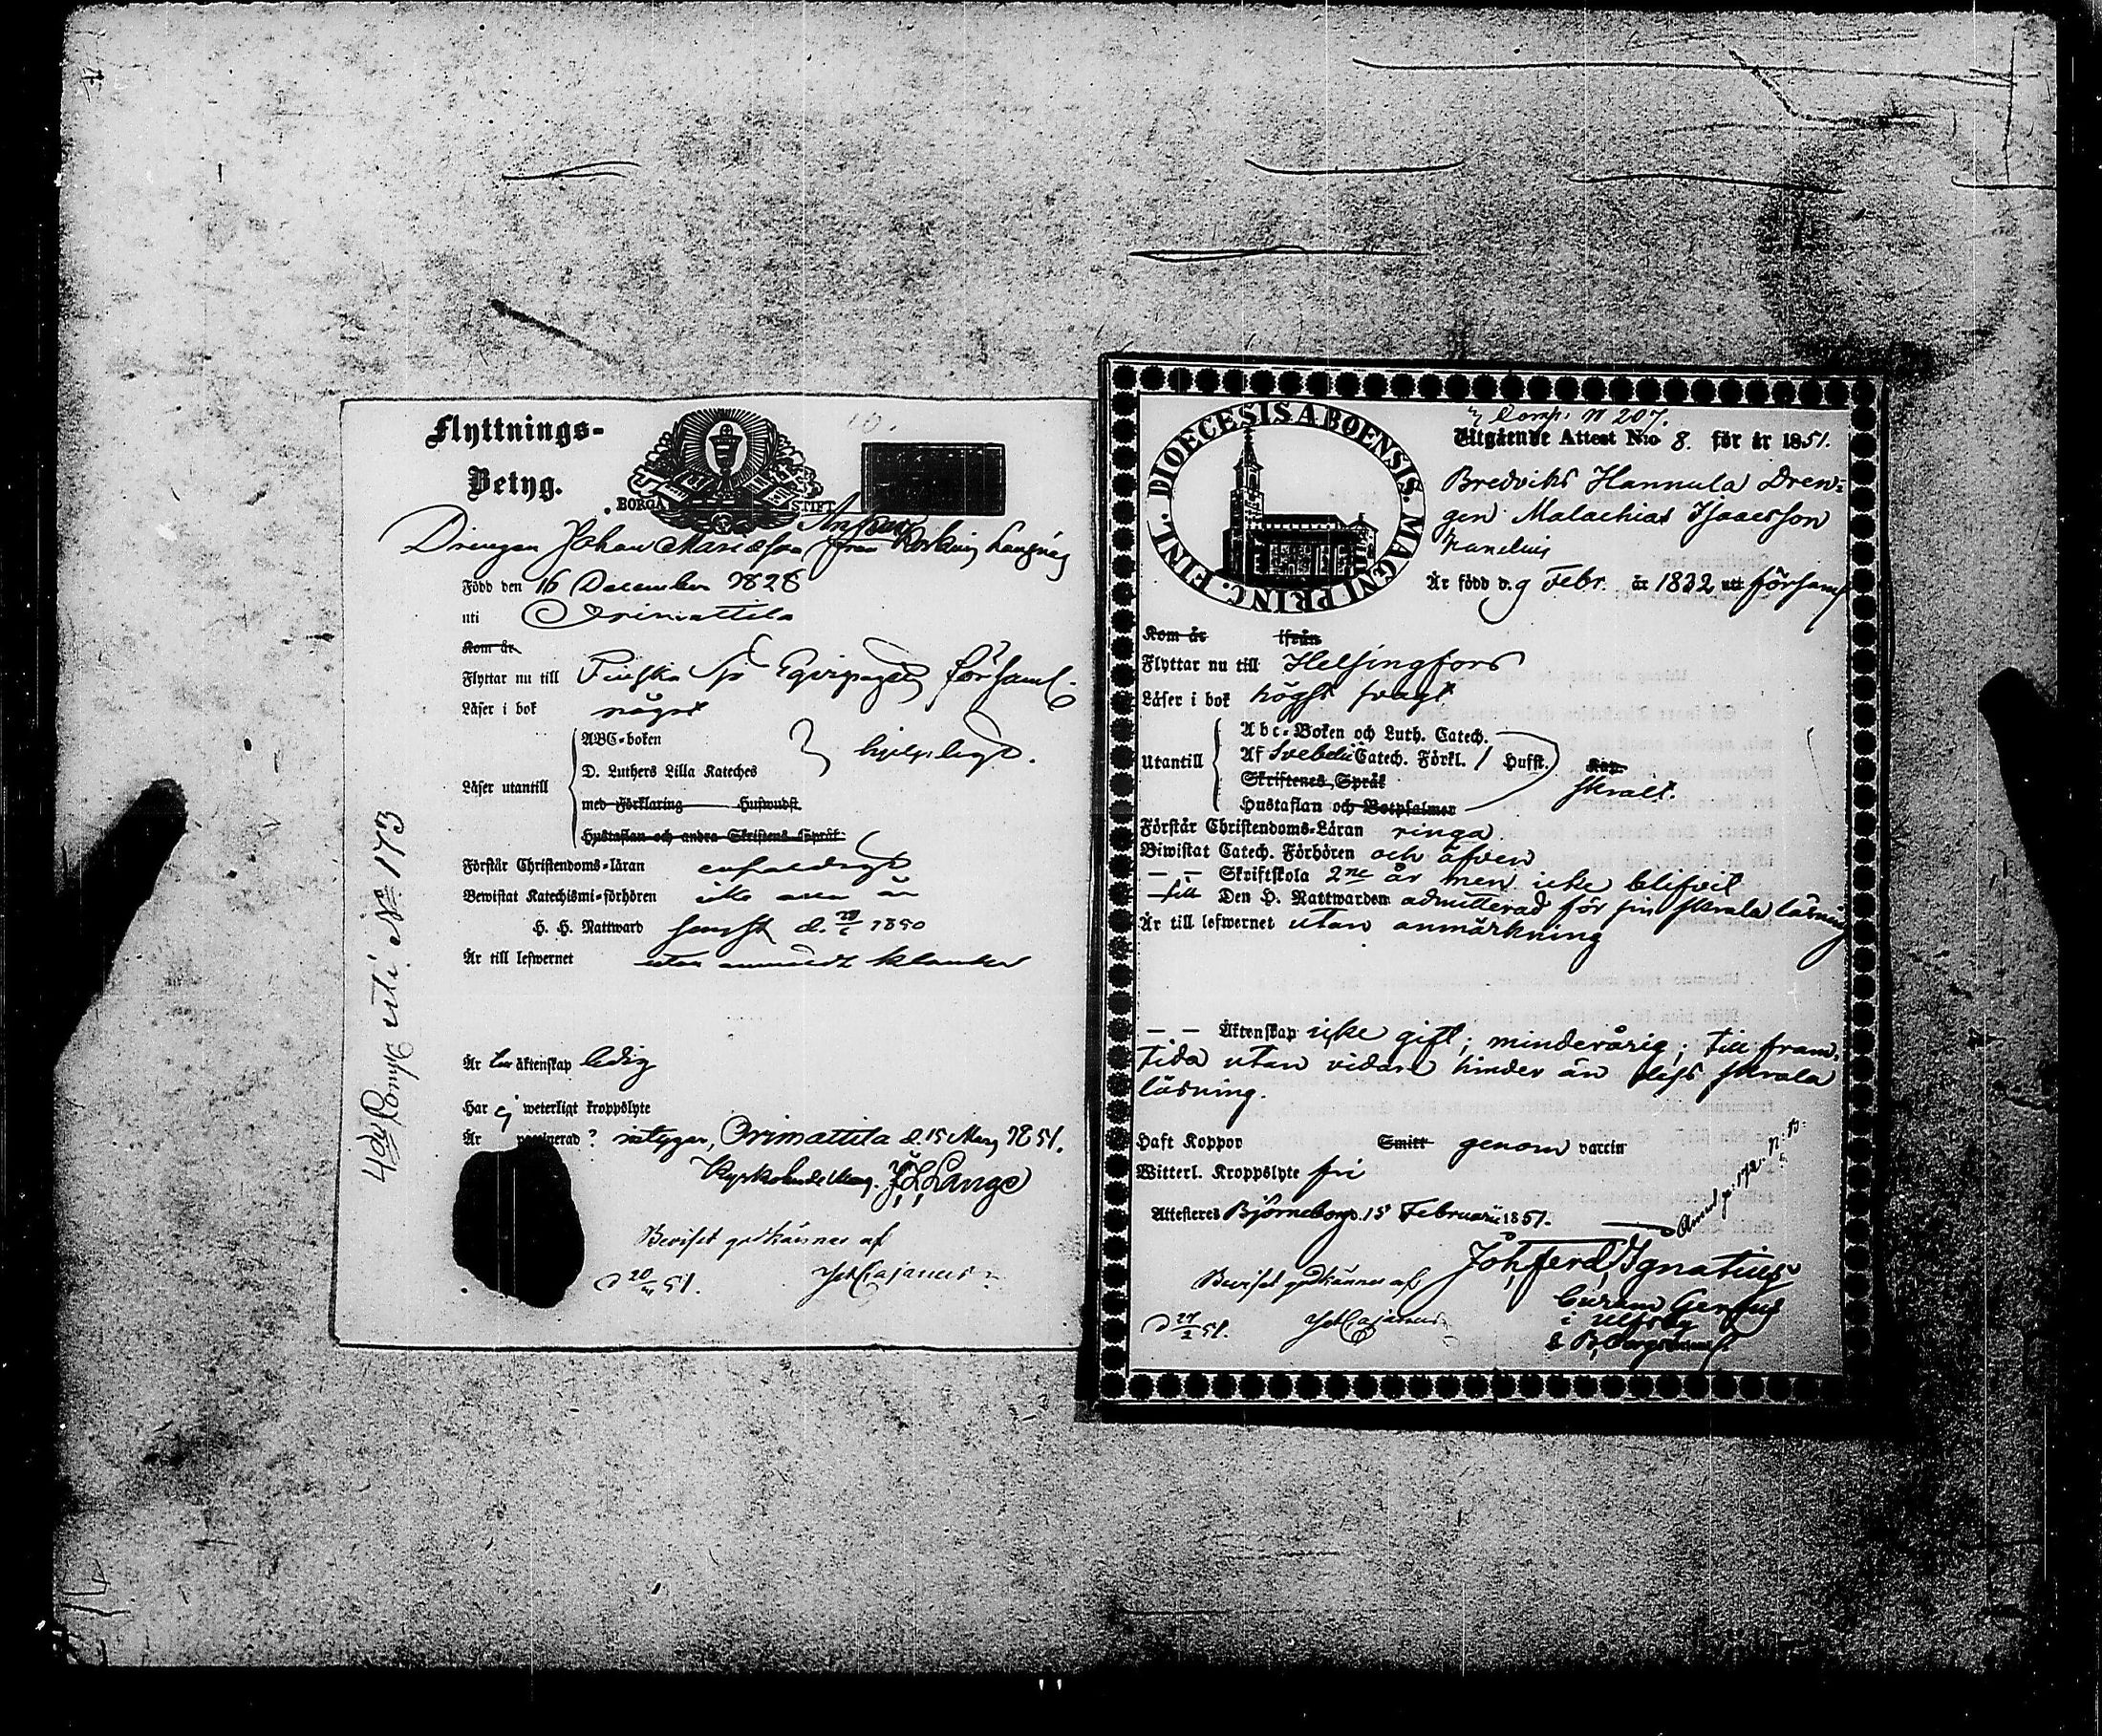 Flyttnings-
Betyg.
BORGÅ STIFT
Drengen Johan Mariæson från
Född den 16 December 1828
uti Orimattila
Kom år
Flyttar nu till Finska Sjö Eqvipagets församl.
Läser i bok något
ABC-boken
D. Luthers Lilla Kateches hjelpligt.
Läser utantill
med Förklaring Huswudst.
Hustaflan och andra Skriftens Språk
Förstår Christendoms-läran enfaldigt
Bewistat Katechismi-förhören
H. H. Nattward senast d. 1850
Är till lefwernet utan anmärkt klander
Är till äktenskap ledig
Har ej weterligt kroppslyte
Är vaccinerad? intygar, Orimattila d. 15 Mars 1851.
J. L. Lange
Beviset godkännes af
d 20 51. Cajanus
4de Comp. N° 173
Comp. N 207.
DIOECESIS ABOENSIS. MAGNI PRINC. FINL.
Utgående Attest N:o 8. för år 1851.
Bredviks Hannula Dren-
gen Malachias Isaacsson
Är född d. 9 Febr. år 1832 utt församl
Kom år ifrån
Flyttar nu till Helsingfors
Läser i bok högst svagt
Abc-Boken och Luth. Catech.
Utantill Af Svebelii Catech. Förkl. / Hufst.
Skriftenes Språk skralt.
Hustaflan och Botpsalmer
Förstår Christendoms-Läran ringa
Biwistat Catech. Förhören och äfven
— — Skriftskola 2ne år men icke blifvit
— till Den H. Nattwarden admitterad för sin skrala läsning
Är till lefwernet utan anmärkning
— — Äktenskap icke gift; minderårig; till fram-
tida utan vidare hinder än dess skrala
läsning.
Haft Koppor Smitt genom vaccin
Witterl. Kroppslyte fri
Attesteres Björneborg d. 15 Februarii 1851.
Joh. Ferd. Ignatius
Beviset godkännes af
Curam Gerens
i Ulfsby
d 27/2 51. Cajanus